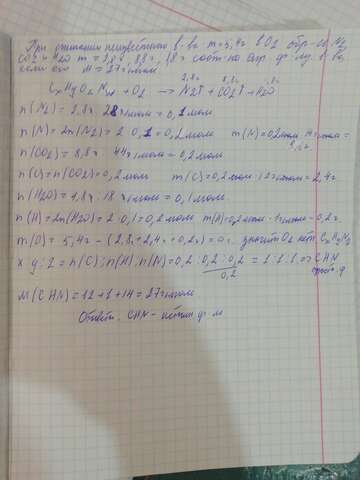 При сжигании неизвестного в-ва m=5,4г в O2 обр-сь N2
CO2 и H2O m=2,8г, 8,8г, 1,8г соот-но
если его M=27г/моль
2,8г 8,8г 1,8г
+O2 → N2↑+CO2↑+H2O
n(N2)=2,8г : 28г/моль=0,1моль
n(N)=2n(N2)=2·0,1=0,2моль m(N)=0,2моль·14г/моль=
2,8г
n(CO2)=8,8г : 44г/моль=0,2моль
n(C)=n(CO2)=0,2моль m(C)=0,2моль·12г/моль=2,4г
n(H2O)=1,8г : 18г/моль=0,1моль
n(H)=2n(H2O)=2·0,1=0,2моль m(H)=0,2моль·1г/моль=0,2г
m(O)=5,4г-(2,8г+2,4г+0,2г)=0г значит O2 нет CxHyNz
x:y:z=n(C):n(H):n(N)=0,2:0,2:0,2=1:1:1 => CHN
0,2 прост.ф.
M(CHN)=12+1+14=27г/моль
Ответ: CHN-истин.ф-ла